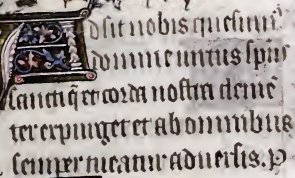 Adsit nobis quesum᷒
domine uirtus sp̄us
sancti q̄ et corda nostra clemē
ter expurget et ab omnibus
semper tueatur aduersis. P